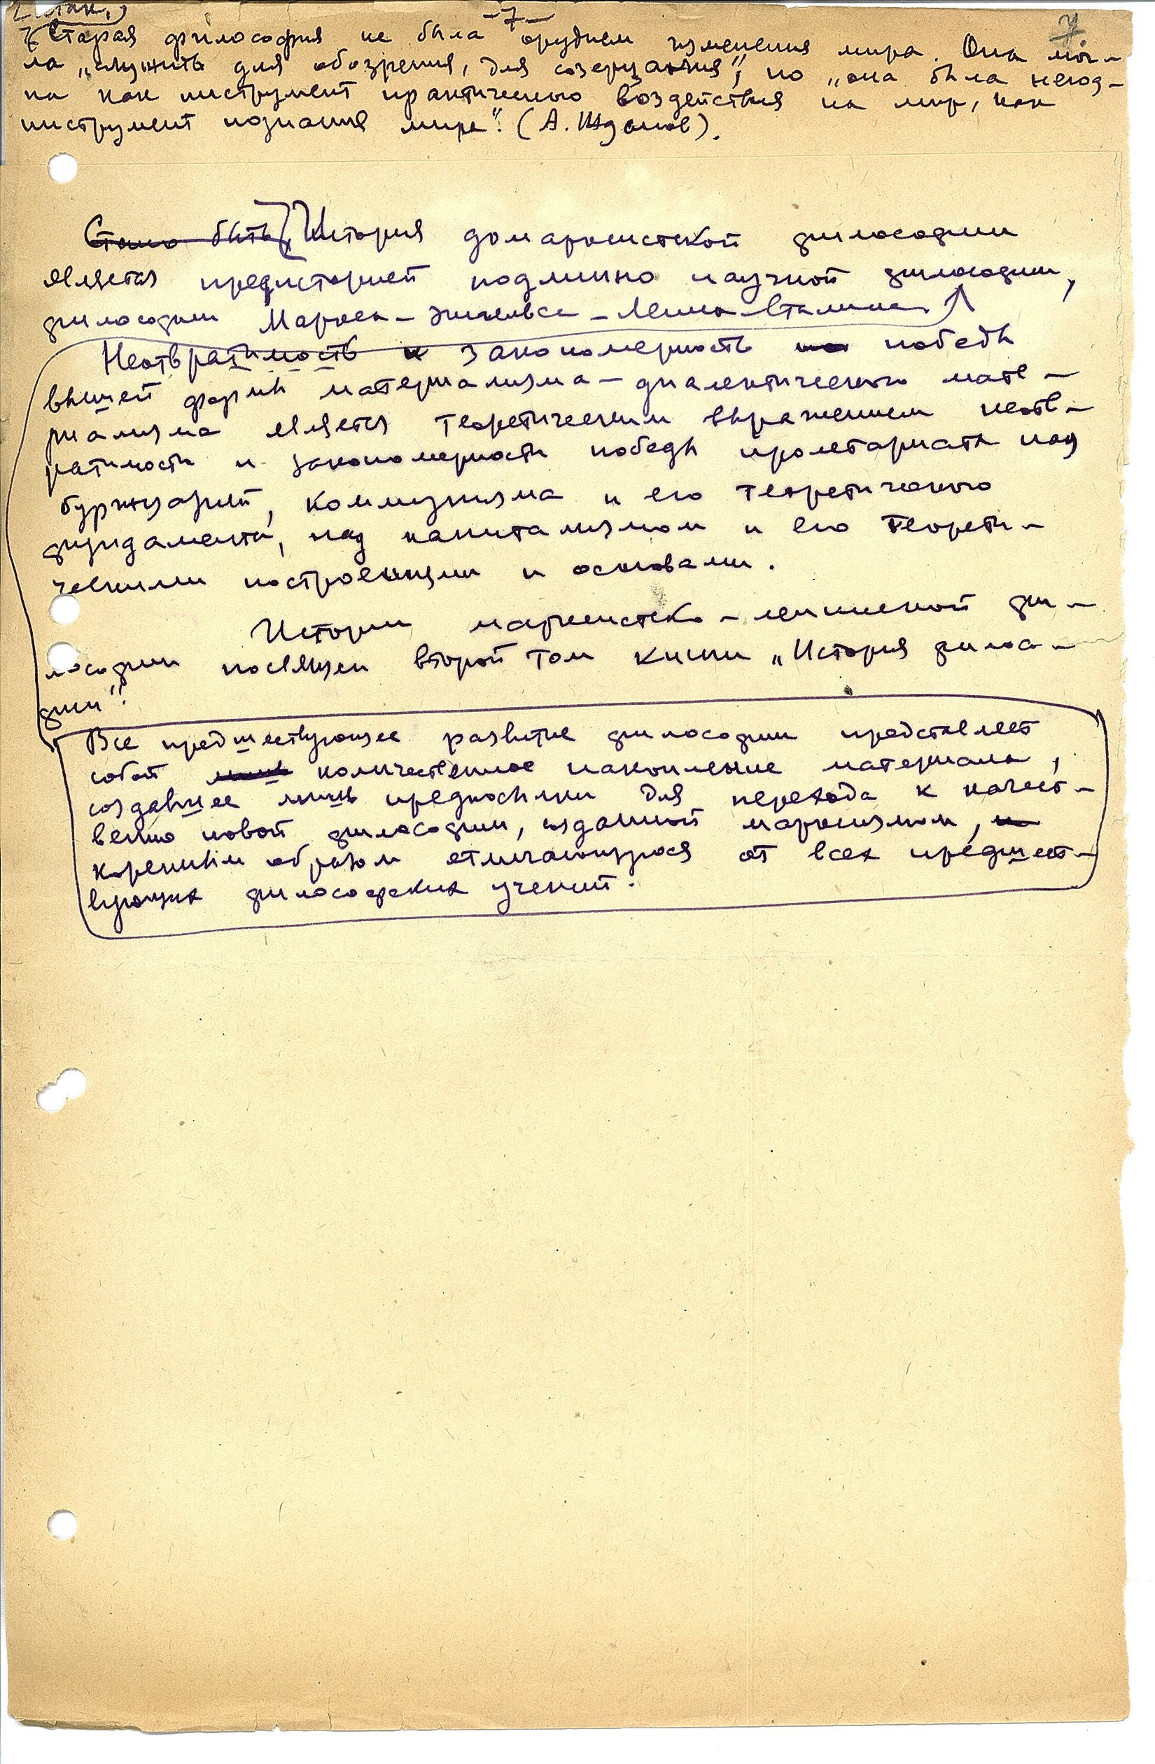 -7-
7
Старая философия не была орудием изменения мира. Она мог-
ла „служить для обозрения, для созерцания”, но „она была негод-
на как инструмент практического воздействия на мир, как
инструмент познания мира”. (А. Жданов).
Стало быть, История домарксистской философии
является предисторией подлинно научной философии,
философии Маркса – Энгельса – Ленина – Сталина.
Неотвратимость и закономерность победы
высшей формы материализма – диалектического мате-
риализма является теоретическим выражением неотв-
ратимости и закономерности победы пролетариата над
буржуазией, коммунизма и его теоретического
фундамента, над капитализмом и его теорети-
ческими построениями и основами.
Истории марксистско-ленинской фи-
лософии посвящен второй том книги „История филосо-
фии”.
Все предшествующее развитие философии представляет
собой лишь количественное накопление материала,
создавшее лишь предпосылки для перехода к качест-
венно новой философии, созданной марксизмом,
коренным образом отличающуюся от всех предшест-
вующих философских учений.